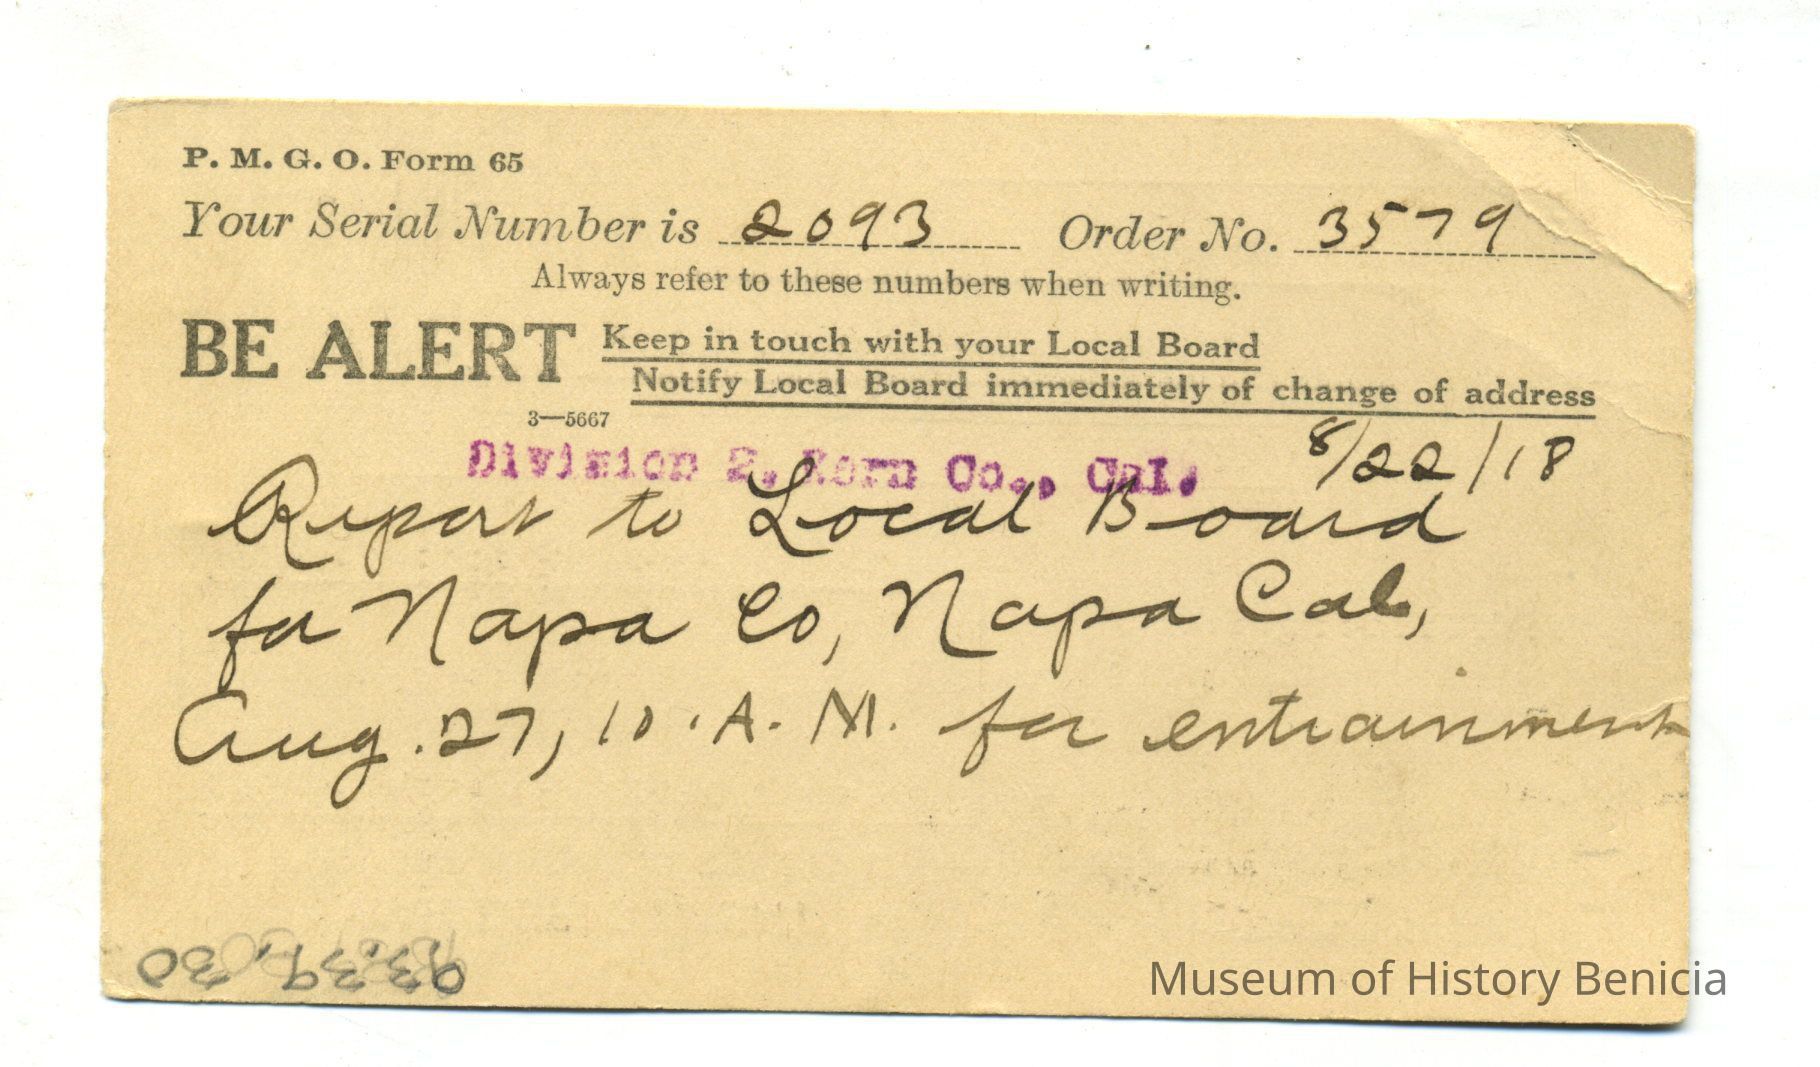 P. M. G. O. Form 65
Your Serial Number is 2093 Order No. 3579
Always refer to these numbers when writing.
BE ALERT Keep in touch with your Local Board
Notify Local Board immediately of change of address
3—5667
Division 2, Kern Co., Cal. 8/22/18
Report to Local Board
for Napa Co, Napa Cal,
Aug. 27, 10. A. M. for entrainment
93.39.30
Museum of History Benicia